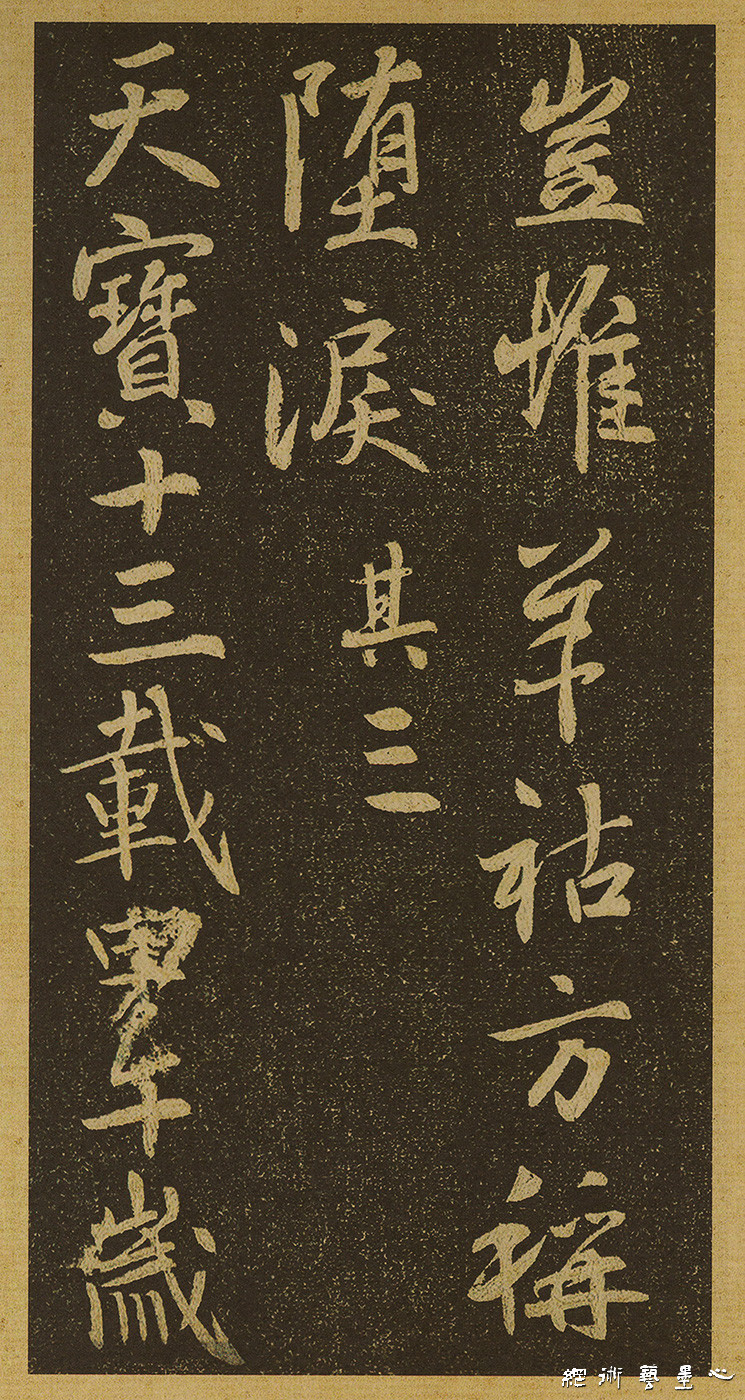 豈惟羊祜方稱
堕淚其三
天寶十三載甲午歲
心墨藝術網